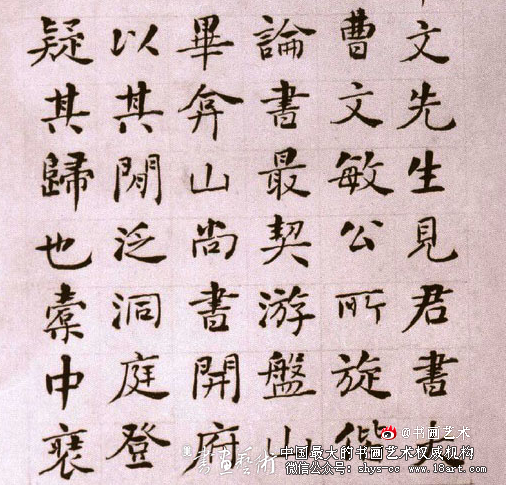 文先生見君書
曹文敏公所旋偕
論書最契游盤山
畢弇山尚書開府
以其閒泛洞庭登
疑其歸也橐中
@书画艺术
書畫藝術
中国最大的书画艺术权威机构
微信公众号: shys-cc www.18art.com